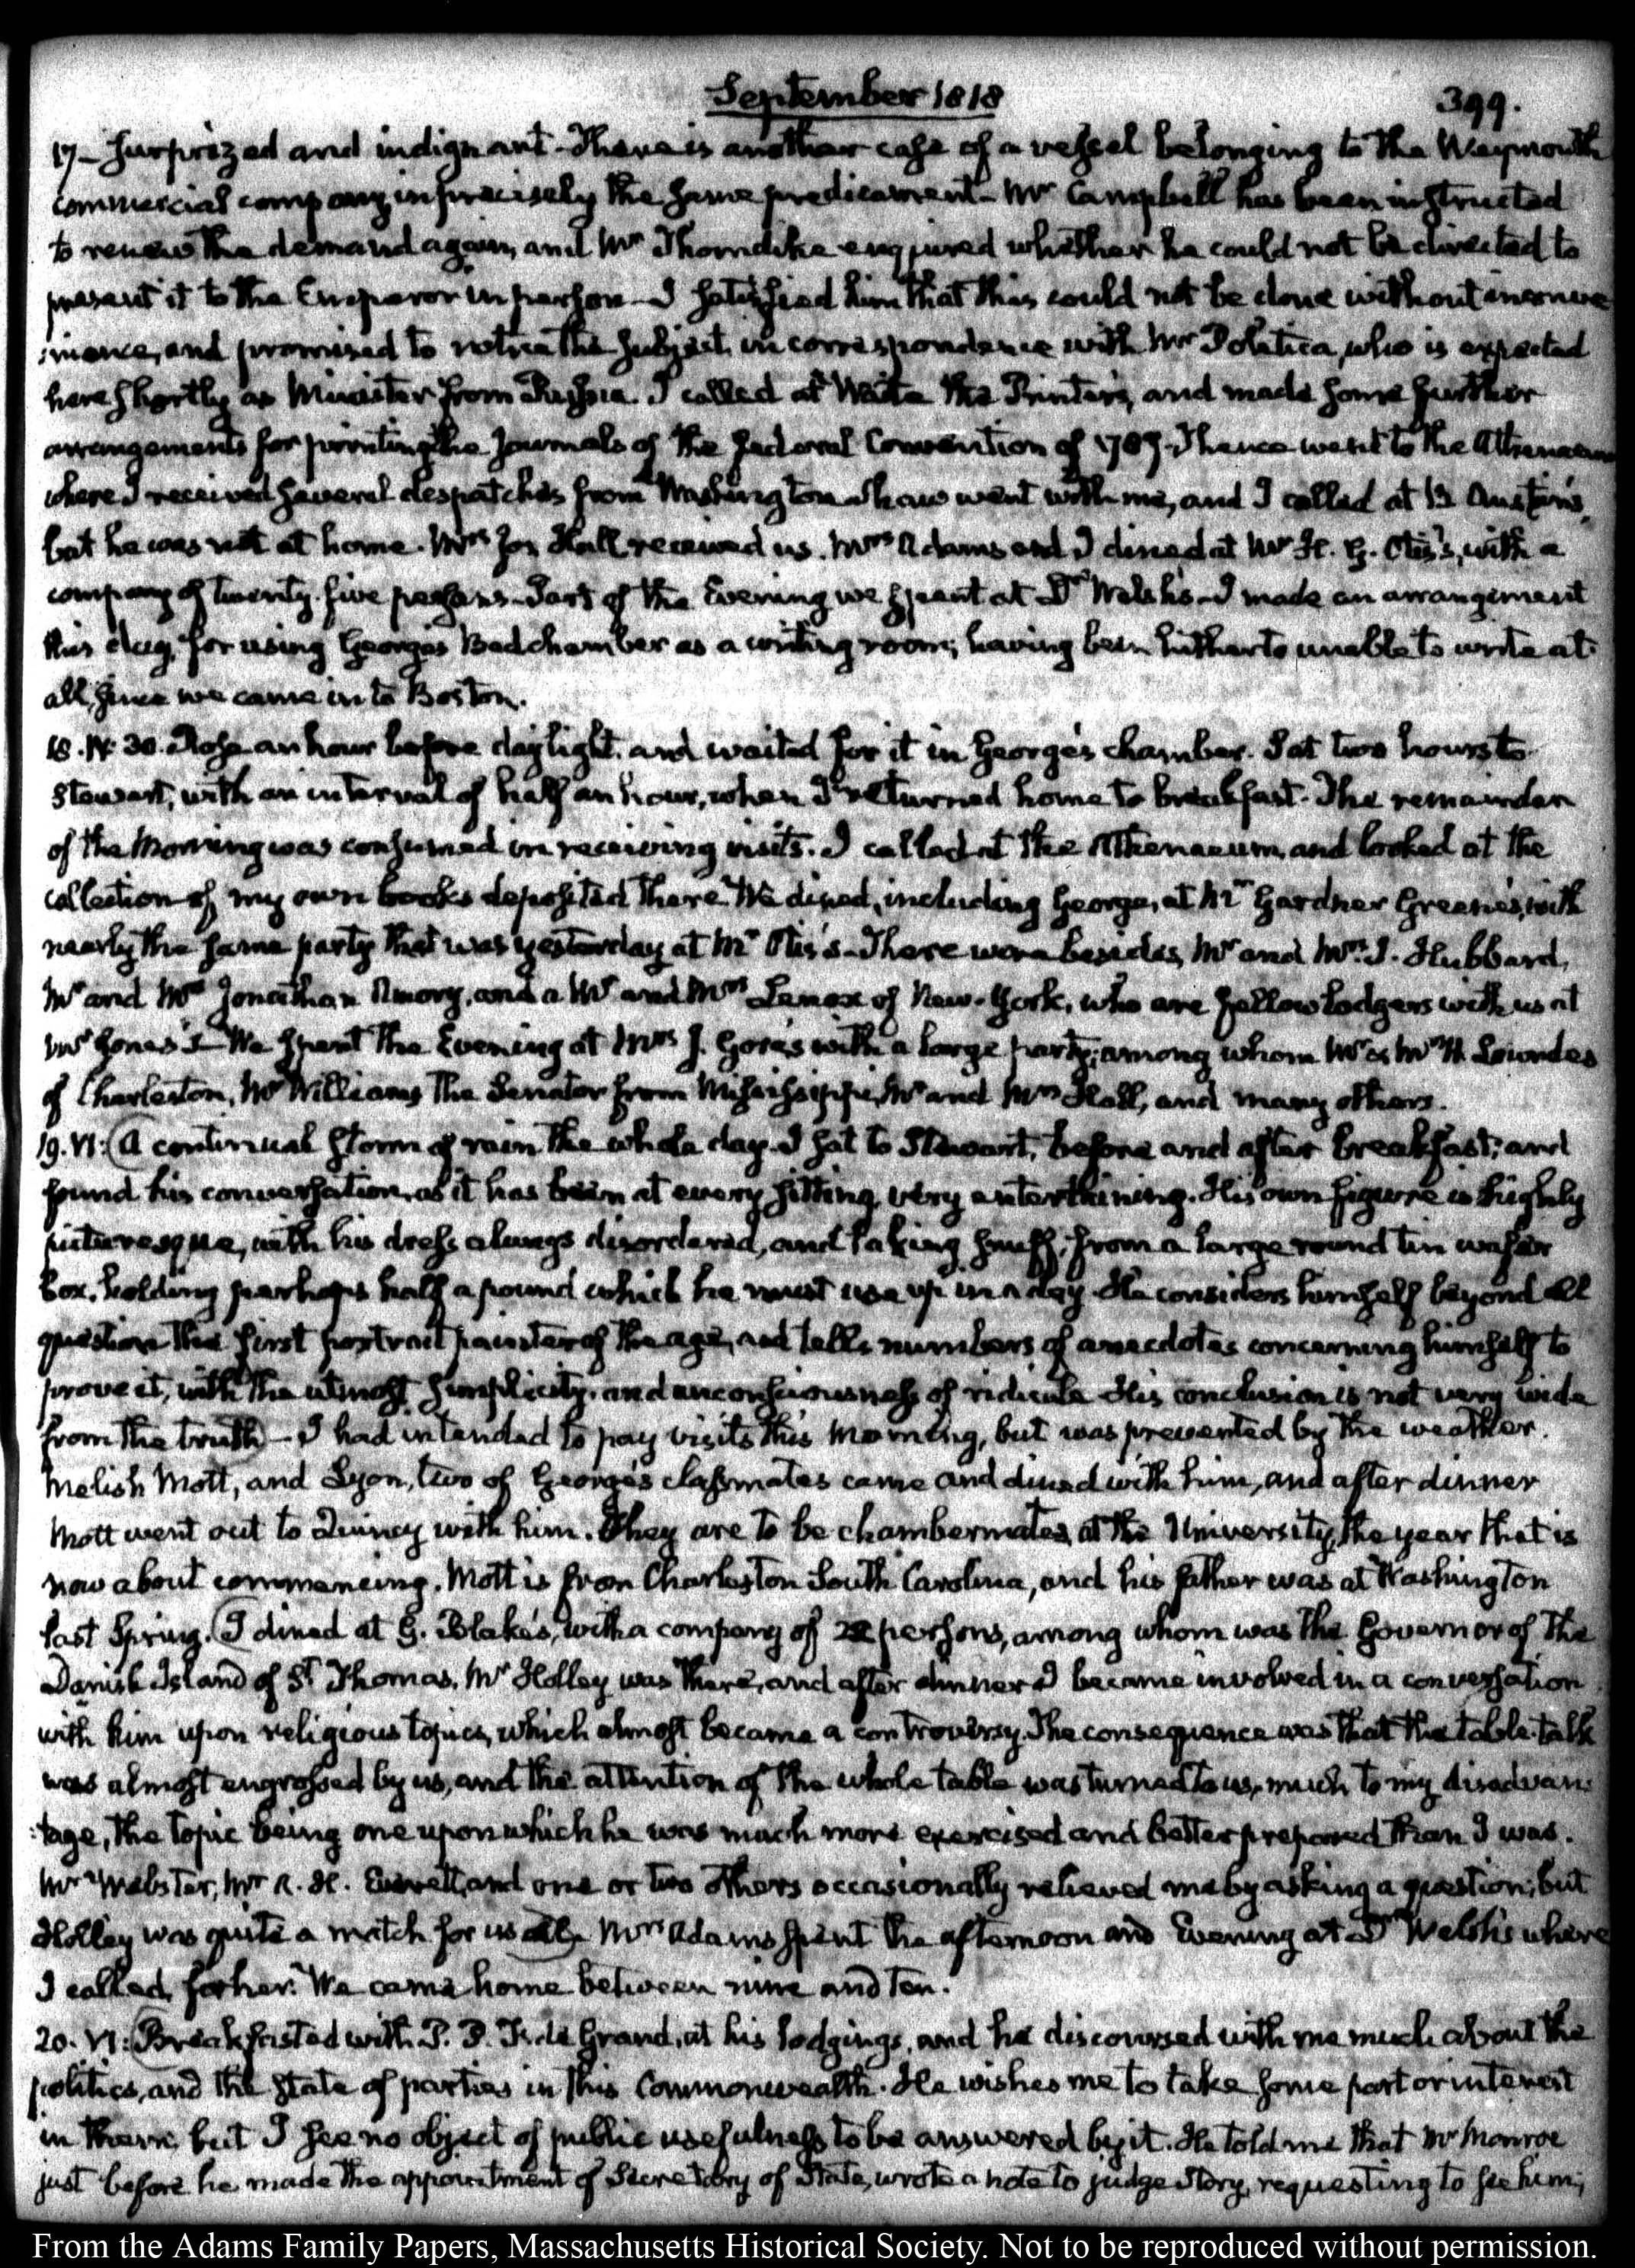 September 1818
399.
17 – Surprized and indignant – There is another case of a vessel belonging to the Weymouth
commercial company in precisely the same predicament – Mr Campbell has been instructed
to renew the demand again, and Mr Thorndike enquired whether he could not be directed to
present it to the Emperor in person – I satisfied him that this could not be done without inconve
:nience, and promised to notice the subject, in correspondence with Mr Poletica, who is expected
here shortly as Minister from Russia. I called at Waite the Printer's, and made some further
arrangements for printing the Journals of the federal Convention of 1787 – Thence went to the Athenaeum
where I received several despatches from Washington – Shaw went with me, and I called at B. Austin's,
but he was not at home. Mrs Jos. Hall received us. Mrs Adams and I dined at Mr H. G. Otis's, with a
company of twenty-five persons – Part of the Evening we spent at Dr Welsh's – I made an arrangement
this day, for using George's Bedchamber as a writing room; having been hitherto unable to write at
all, since we came into Boston.
18. IV: 30. Rose an hour before daylight, and waited for it in George's chamber. Sat two hours to
Stewart, with an interval of half an hour, when I returned home to breakfast. The remainder
of the Morning was consumed in receiving visits. I called at the Athenaeum, and looked at the
collection of my own books deposited there. We dined, including George, at Mr Gardner Greene's, with
nearly the same party that was yesterday at Mr Otis's – There were besides, Mr and Mrs J. Hubbard,
Mr and Mrs Jonathan Amory, and a Mr and Mrs Lenox of New-York, who are fellow lodgers with us at
Mrs Jones's – We spent the Evening at Mrs J. Gore's with a large party; among whom Mr & Mrs Lowndes
of Charleston, Mr Williams the Senator from Mississippi, Mr and Mrs Hall, and many others.
19. VI: A continual storm of rain the whole day. I sat to Stewart, before and after breakfast; and
found his conversation, as it has been at every sitting, very entertaining. His own figure is highly
picturesque, with his dress always disordered, and taking snuff, from a large round tin wafer
box, holding perhaps half a pound which he must use up in a day. He considers himself beyond all
question the first portrait painter of the age, and tells numbers of anecdotes concerning himself to
prove it, with the utmost simplicity, and unconsciousness of ridicule. His conclusion is not very wide
from the truth – I had intended to pay visits this Morning, but was prevented by the weather.
Melish Mott, and Lyon, two of George's classmates came and dined with him, and after dinner
Mott went out to Quincy with him. They are to be chambermates, at the University, the year that is
now about commencing. Mott is from Charleston South Carolina, and his father was at Washington
last Spring. I dined at G. Blake's, with a company of 22 persons, among whom was the Governor of the
Danish Island of St Thomas. Mr Holley was there, and after dinner I became involved in a conversation
with him upon religious topics, which almost became a controversy. The consequence was that the table-talk
was almost engrossed by us, and the attention of the whole table was turned to us, much to my disadvan:
:tage, the topic being one upon which he was much more exercised and better prepared than I was.
Mr Webster, Mr A. H. Everett, and one or two others occasionally relieved me by asking a question; but
Holley was quite a match for us all. Mrs Adams spent the afternoon and Evening at Dr Welsh's where
I called for her. We came home between nine and ten.
20. VI: Breakfasted with P. P. F. de Grand, at his lodgings, and he discoursed with me much about the
politics, and the state of parties in this Commonwealth. He wishes me to take some part or interest
in them, but I see no object of public usefulness to be answered by it. He told me that Mr Monroe
just before he made the appointment of Secretary of State, wrote a note to judge Story, requesting to see him;
From the Adams Family Papers, Massachusetts Historical Society. Not to be reproduced without permission.